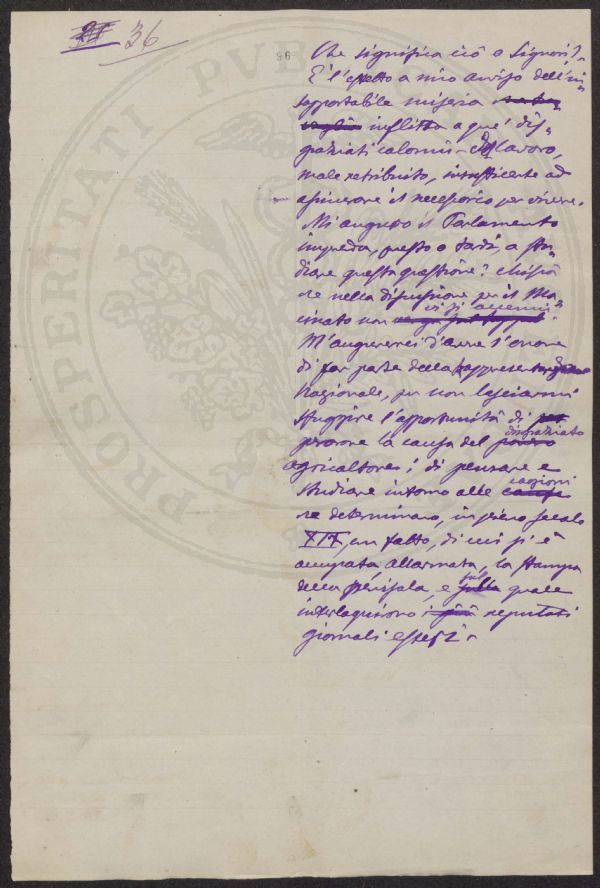 36
96
Che significa ciò o Signori?
È l'effetto a mio avviso dell'in=
sopportabile miseria
inflitta a que' dis=
graziati coloni – del lavoro,
male retribuito, insufficiente ad
il necessario per vivere.
Mi auguro il Parlamento
imprenda, presto o tardi, a stu=
diare questa questione?
re nella discussione per il Ma=
cinato non vi si accennò
M'augurerei d'avere l'onore
di far parte della Rappresentanza
Nazionale, per non lasciarmi
sfuggire l'opportunità di
perorare la causa del disgraziato
agricoltore; di pensare e
studiare intorno alle cagioni
ne determinano, in pieno secolo
XIX, un fatto, di cui si è
occupata, allarmata, la stampa
della penisola, e sul quale
interloquirono i reputati
giornali esteri
PROSPERITATI PVB